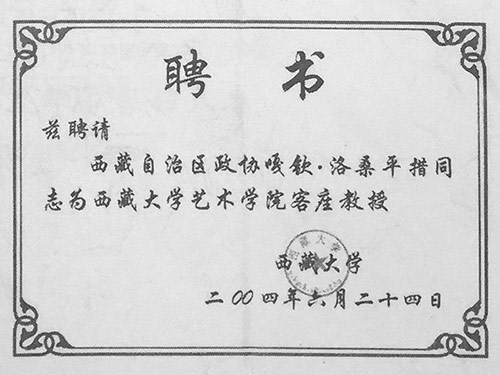 聘书
兹聘请
西藏自治区政协嘎钦·洛桑平措同
志为西藏大学艺术学院客座教授
西藏大学
二00四年六月二十四日